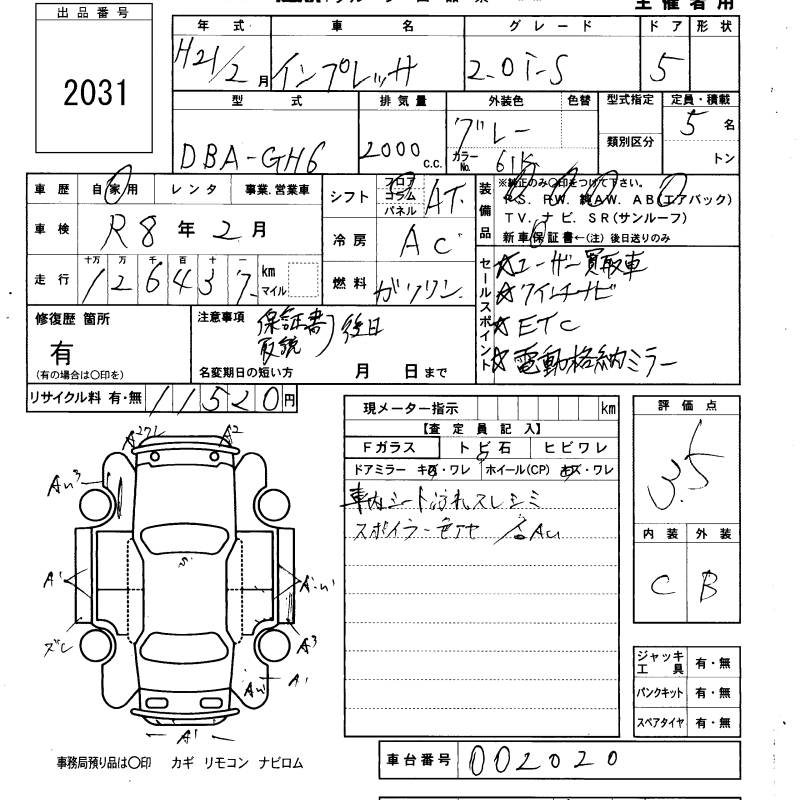 出品番号
2031
主催者用
年式 車名 グレード ドア 形状
H21/2月 インプレッサ 2.0i-S 5
型式 排気量 外装色 色替 型式指定 定員・積載
DBA-GH6 2000 c.c. グレー 5名
カラーNo. 61K 類別区分 トン
車歴 自家用 レンタ 事業.営業車
シフト フロア コラム パネル AT.
装備品
※純正のみ〇印をつけて下さい。
P.S. P.W. 純AW. A B(エアバック)
T V. ナ ビ. S R (サンルーフ)
新車保証書←(注) 後日送りのみ
車検 R8年2月
冷房 AC
走行 十万 万 千 百 十 一
126437 km マイル
燃料 ガソリン.
セールスポイント
☆ユーザー買取車
☆ワインチナビ
☆ETC
☆電動格納ミラー
修復歴 箇所
有
(有の場合は〇印を)
注意事項 保証書 取説 後日
名変期日の短い方 月 日まで
リサイクル料 有・無 11520円
現メーター指示 km
【査定員記入】
Fガラス トビ石 ヒビワレ
ドアミラー キズ・ワレ ホイール(CP) キズ・ワレ
車内シート汚れスレシミ
スポイラー色アセ
評価点
3.5
内装 外装
C B
A2
A3
A'
ズレ
A'
ジャッキ 工具 有・無
パンクキット 有・無
スペアタイヤ 有・無
事務局預り品は〇印 カギ リモコン ナビロム
車台番号 002020